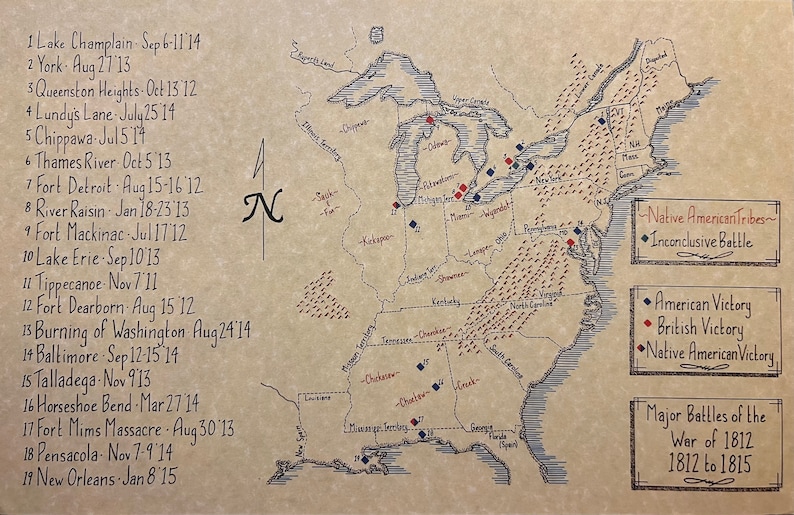 1 Lake Champlain · Sep 6-11 '14
2 York · Aug 27 '13
3 Queenston Heights · Oct 13 '12
4 Lundy's Lane · July 25 '14
5 Chippawa · Jul 5 '14
6 Thames River · Oct 5 '13
7 Fort Detroit · Aug 15-16 '12
8 River Raisin · Jan 18-23 '13
9 Fort Mackinac · Jul 17 '12
10 Lake Erie · Sep 10 '13
11 Tippecanoe · Nov 7 '11
12 Fort Dearborn · Aug 15 '12
13 Burning of Washington Aug 24 '14
14 Baltimore · Sep 12-15 '14
15 Talladega · Nov 9 '13
16 Horseshoe Bend · Mar 27 '14
17 Fort Mims Massacre · Aug 30 '13
18 Pensacola · Nov 7-9 '14
19 New Orleans · Jan 8 '15
N
Rupert's Land
Upper Canada
Lower Canada
Disputed
Maine
VT
N.H.
Mass
Conn.
New York
N.J.
Pennsylvania
MD
Illinois Territory
~Chippewa~
Odawa
Potawatomi
Michigan Terr
Sauk
Fox
~Kickapoo~
Miami~
~Wyandot
Lenape
Ohio
Indiana Terr
Shawnee
Kentucky
Virginia
North Carolina
Missouri Territory
Tennessee
Cherokee
South Carolina
~Chickasaw~
Choctaw
~Creek~
Louisiana
New Spain
Mississippi Territory
Georgia
Florida
(Spain)
9
12
11
10
14
15
16
17
18
19
~Native American Tribes~
Inconclusive Battle
American Victory
British Victory
Native American Victory
Major Battles of the
War of 1812
1812 to 1815